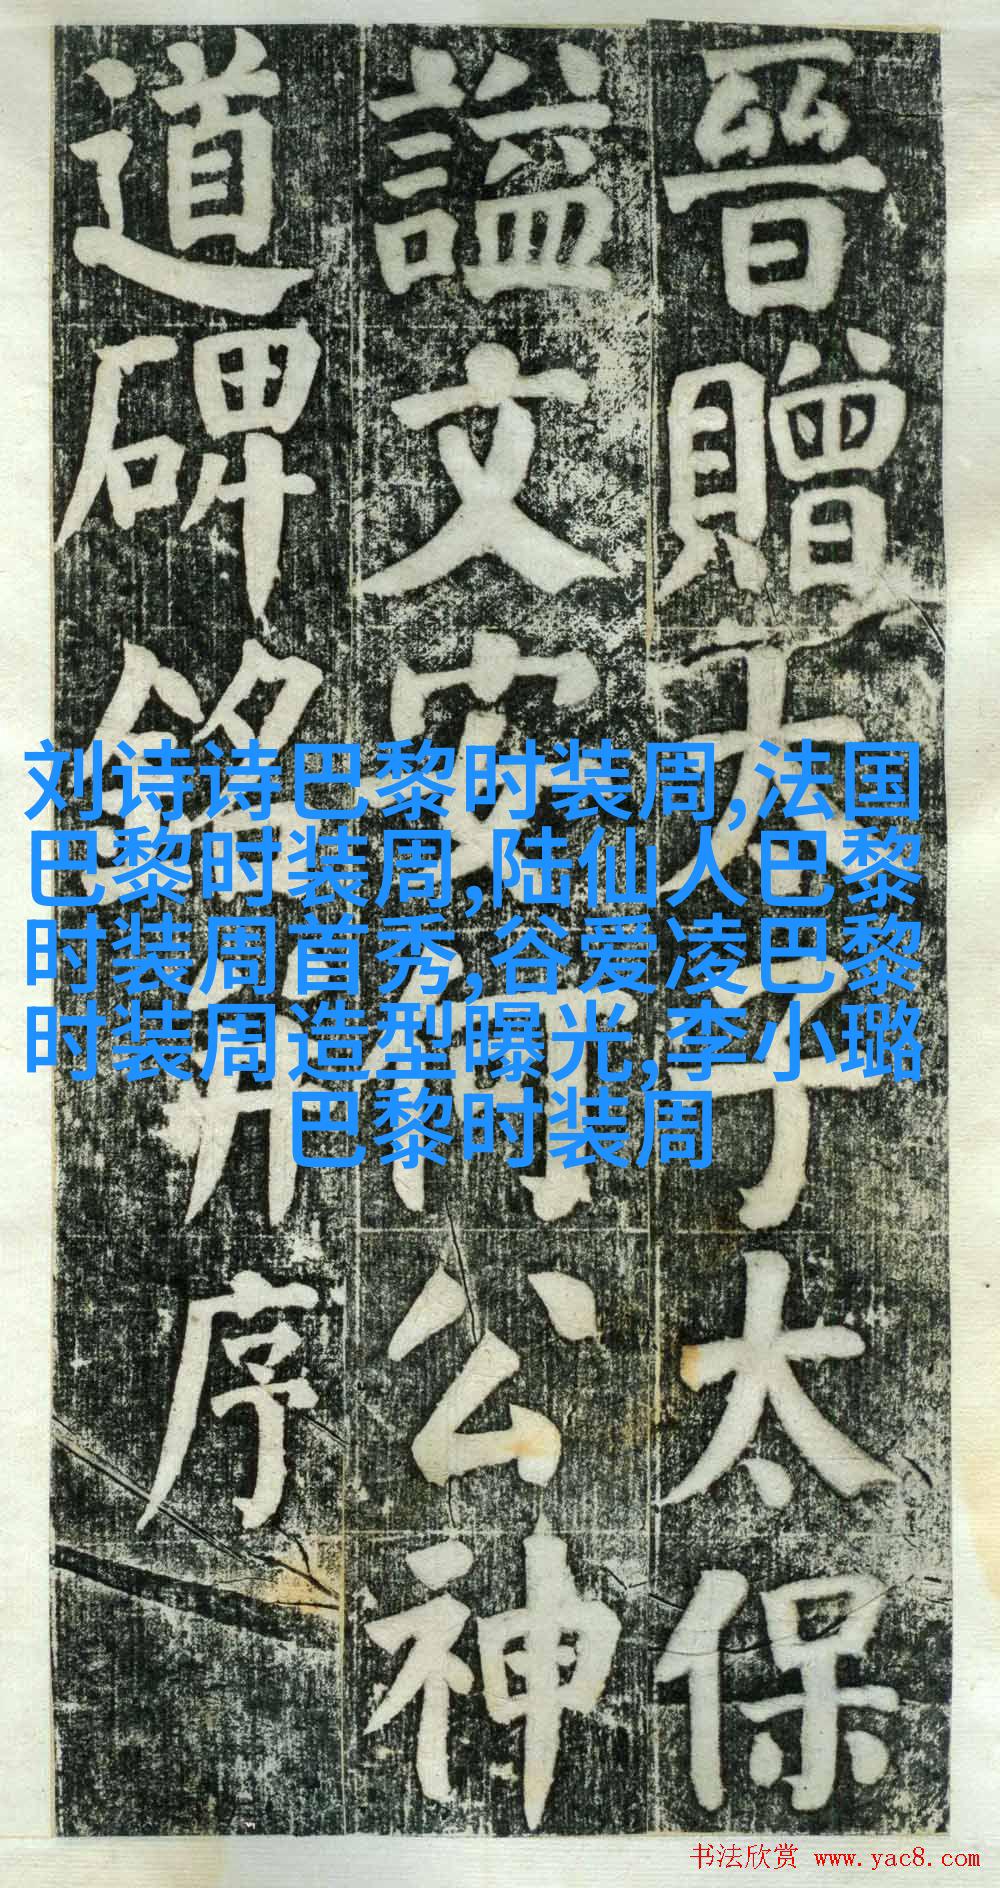 晉贈太子太保
謚文安何公神
道碑銘并序
刘诗诗巴黎时装周,法国
巴黎时装周,陆仙人巴黎
时装周首秀,谷爱凌巴黎
时装周造型曝光,李小璐
巴黎时装周
书法欣赏 www.yac8.com